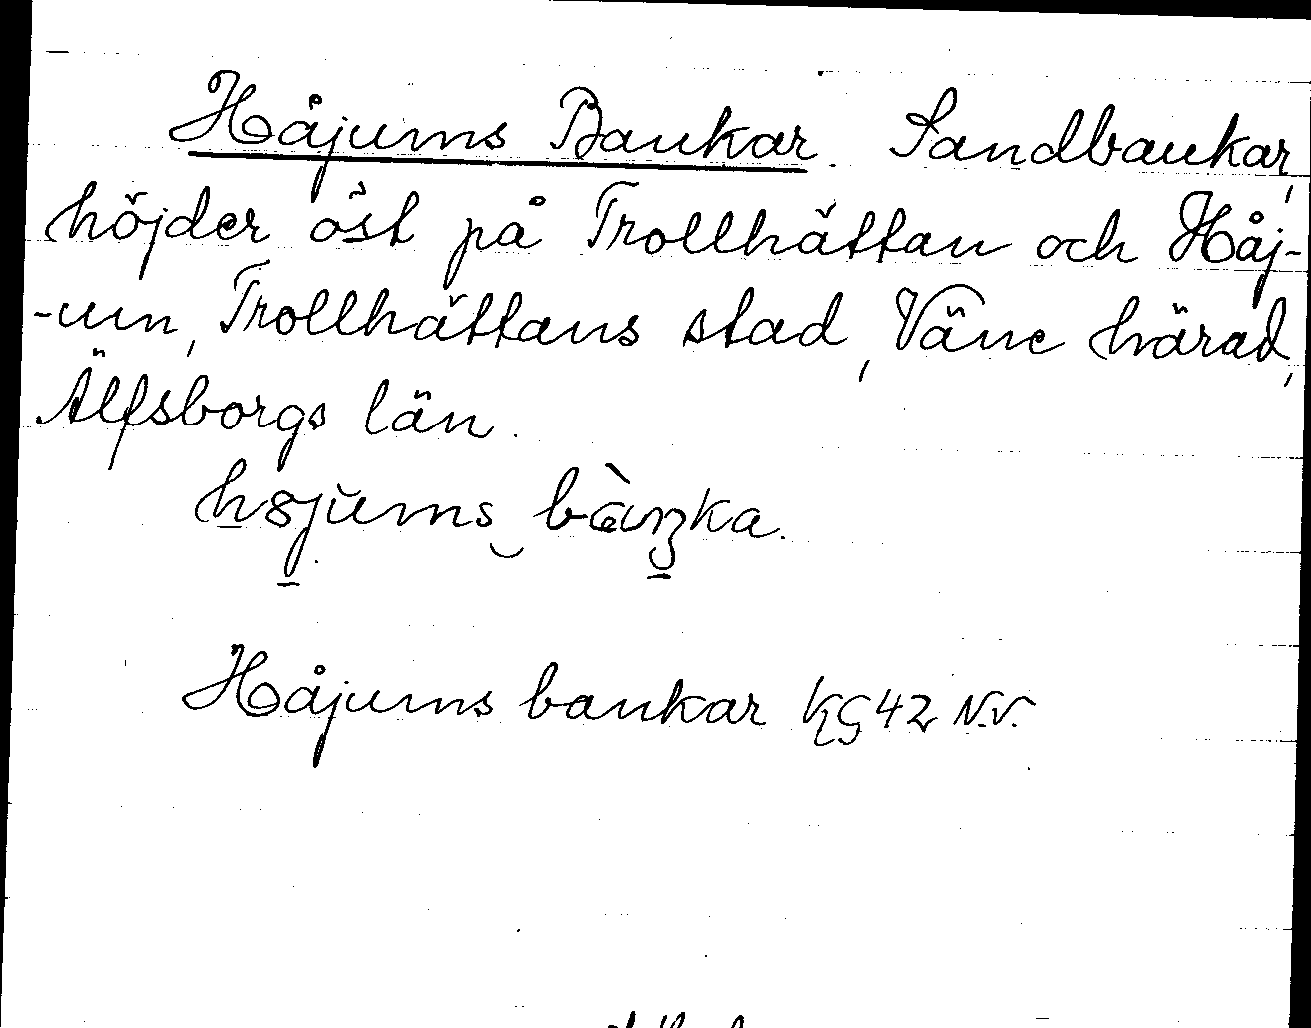 Håjums Bankar. Sandbankar,
höjder öst på Trollhättan och Håj-
-um, Trollhättans stad, Väne härad,
Älfsborgs län.
Håjums bankar KG 42 N.V.